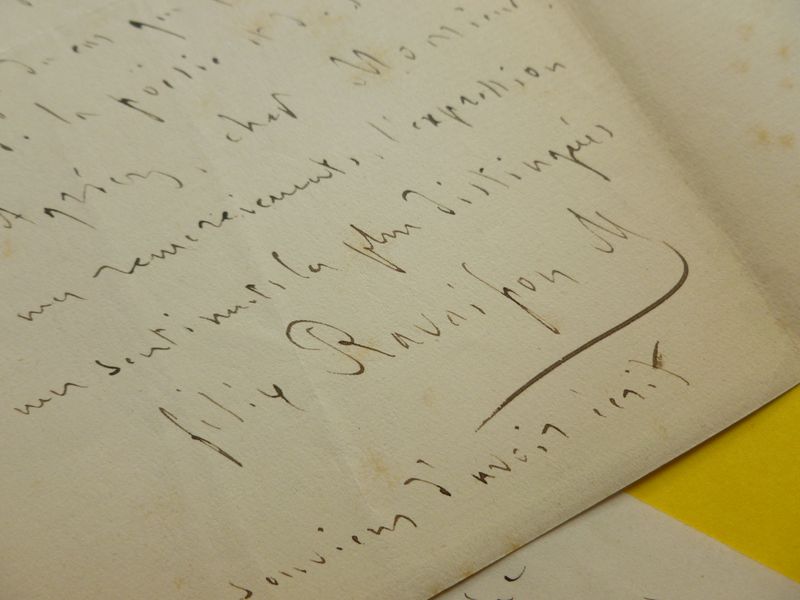 la poésie
Agréez, cher Monsieur,
mes remerciements, l'expression
mes sentiments les plus distingués
félix Ravaisson M
souviens d'avoir écrit